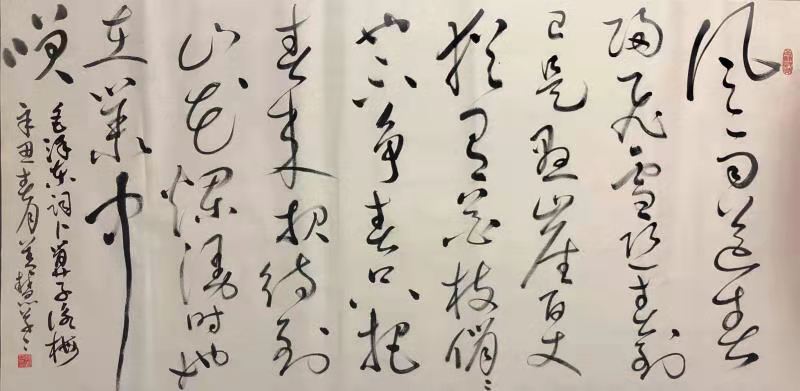 风雨送春
归飞雪迎春到
已是悬崖百丈
犹有花枝俏〻
也不争春只把
春来报待到
山花烂漫时她
在叢中
笑
毛泽东词卜算子咏梅
辛丑春月